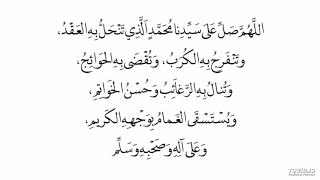 اللَّهُمَّ صَلِّ عَلَىٰ سَيِّدِنَا مُحَمَّدٍ الَّذِي تَنْحَلُّ بِهِ الْعُقَدُ،
وَتَنْفَرِجُ بِهِ الْكُرَبُ، وَتُقْضَىٰ بِهِ الْحَوَائِجُ،
وَتُنَالُ بِهِ الرَّغَائِبُ وَحُسْنُ الْخَوَاتِمِ،
وَيُسْتَسْقَى الْغَمَامُ بِوَجْهِهِ الْكَرِيمِ،
وَعَلَىٰ آلِهِ وَصَحْبِهِ وَسَلِّمْ